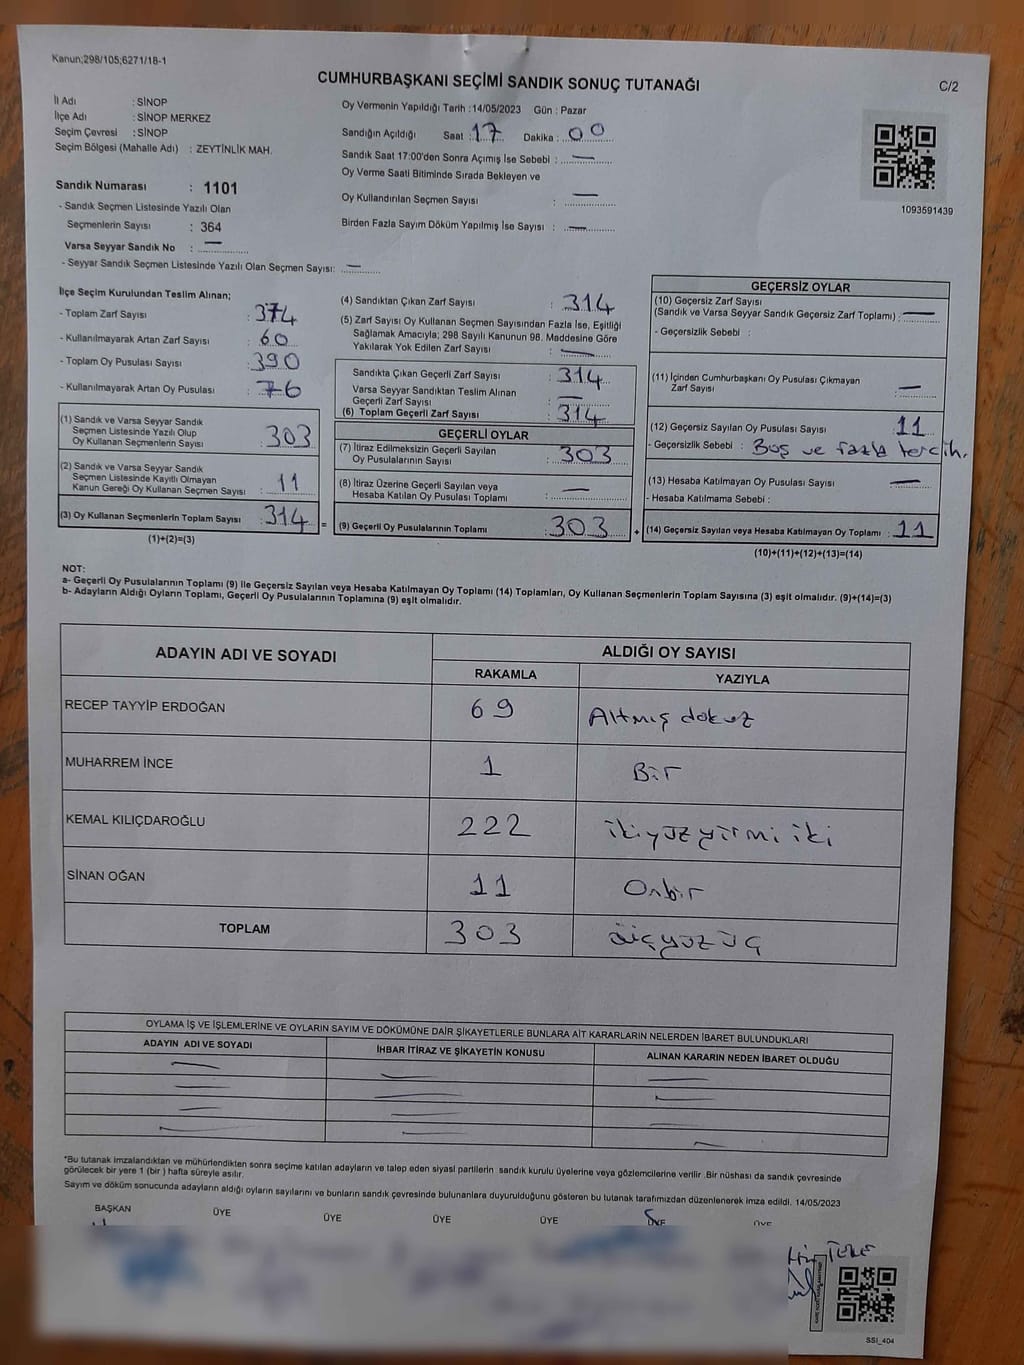 Kanun;298/105;6271/18-1
CUMHURBAŞKANI SEÇİMİ SANDIK SONUÇ TUTANAĞI
C/2
İl Adı : SİNOP
İlçe Adı : SİNOP MERKEZ
Seçim Çevresi : SİNOP
Seçim Bölgesi (Mahalle Adı) : ZEYTİNLİK MAH.
Sandık Numarası : 1101
- Sandık Seçmen Listesinde Yazılı Olan
Seçmenlerin Sayısı : 364
Varsa Seyyar Sandık No : —
- Seyyar Sandık Seçmen Listesinde Yazılı Olan Seçmen Sayısı: —
Oy Vermenin Yapıldığı Tarih :14/05/2023 Gün : Pazar
Sandığın Açıldığı Saat : 17 Dakika : 00
Sandık Saat 17:00'den Sonra Açımış İse Sebebi : —
Oy Verme Saati Bitiminde Sırada Bekleyen ve
Oy Kullandırılan Seçmen Sayısı : —
Birden Fazla Sayım Döküm Yapılmış İse Sayısı : —
1093591439
İlçe Seçim Kurulundan Teslim Alınan;
- Toplam Zarf Sayısı : 374
- Kullanılmayarak Artan Zarf Sayısı : 60
- Toplam Oy Pusulası Sayısı : 390
- Kullanılmayarak Artan Oy Pusulası : 76
(1) Sandık ve Varsa Seyyar Sandık
Seçmen Listesinde Yazılı Olup
Oy Kullanan Seçmenlerin Sayısı : 303
(2) Sandık ve Varsa Seyyar Sandık
Seçmen Listesinde Kayıtlı Olmayan
Kanun Gereği Oy Kullanan Seçmen Sayısı : 11
(3) Oy Kullanan Seçmenlerin Toplam Sayısı : 314 =
(1)+(2)=(3)
(4) Sandıktan Çıkan Zarf Sayısı : 314
(5) Zarf Sayısı Oy Kullanan Seçmen Sayısından Fazla İse, Eşitliği
Sağlamak Amacıyla; 298 Sayılı Kanunun 98. Maddesine Göre
Yakılarak Yok Edilen Zarf Sayısı : —
Sandıkta Çıkan Geçerli Zarf Sayısı : 314
Varsa Seyyar Sandıktan Teslim Alınan
Geçerli Zarf Sayısı : —
(6) Toplam Geçerli Zarf Sayısı : 314
GEÇERLİ OYLAR
(7) İtiraz Edilmeksizin Geçerli Sayılan
Oy Pusulalarının Sayısı : 303
(8) İtiraz Üzerine Geçerli Sayılan veya
Hesaba Katılan Oy Pusulası Toplamı : —
(9) Geçerli Oy Pusulalarının Toplamı : 303 +
GEÇERSİZ OYLAR
(10) Geçersiz Zarf Sayısı
(Sandık ve Varsa Seyyar Sandık Geçersiz Zarf Toplamı) : —
- Geçersizlik Sebebi :
(11) İçinden Cumhurbaşkanı Oy Pusulası Çıkmayan
Zarf Sayısı : —
(12) Geçersiz Sayılan Oy Pusulası Sayısı : 11
- Geçersizlik Sebebi : Boş ve fazla tercih.
(13) Hesaba Katılmayan Oy Pusulası Sayısı : —
- Hesaba Katılmama Sebebi :
(14) Geçersiz Sayılan veya Hesaba Katılmayan Oy Toplamı : 11
(10)+(11)+(12)+(13)=(14)
NOT:
a- Geçerli Oy Pusulalarının Toplamı (9) ile Geçersiz Sayılan veya Hesaba Katılmayan Oy Toplamı (14) Toplamları, Oy Kullanan Seçmenlerin Toplam Sayısına (3) eşit olmalıdır. (9)+(14)=(3)
b- Adayların Aldığı Oyların Toplamı, Geçerli Oy Pusulalarının Toplamına (9) eşit olmalıdır.
ADAYIN ADI VE SOYADI ALDIĞI OY SAYISI
RAKAMLA YAZIYLA
RECEP TAYYİP ERDOĞAN 69 Altmış dokuz
MUHARREM İNCE 1 Bir
KEMAL KILIÇDAROĞLU 222 ikiyüzyirmi iki
SİNAN OĞAN 11 Onbir
TOPLAM 303 üçyüz üç
OYLAMA İŞ VE İŞLEMLERİNE VE OYLARIN SAYIM VE DÖKÜMÜNE DAİR ŞİKAYETLERLE BUNLARA AİT KARARLARIN NELERDEN İBARET BULUNDUKLARI
ADAYIN ADI VE SOYADI İHBAR İTİRAZ VE ŞİKAYETİN KONUSU ALINAN KARARIN NEDEN İBARET OLDUĞU
*Bu tutanak imzalandıktan ve mühürlendikten sonra seçime katılan adayların ve talep eden siyasi partilerin sandık kurulu üyelerine veya gözlemcilerine verilir .Bir nüshası da sandık çevresinde
görülecek bir yere 1 (bir ) hafta süreyle asılır.
Sayım ve döküm sonucunda adayların aldığı oyların sayılarını ve bunların sandık çevresinde bulunanlara duyurulduğunu gösteren bu tutanak tarafımızdan düzenlenerek imza edildi. 14/05/2023
BAŞKAN ÜYE ÜYE ÜYE ÜYE ÜYE ÜYE
SSI_404